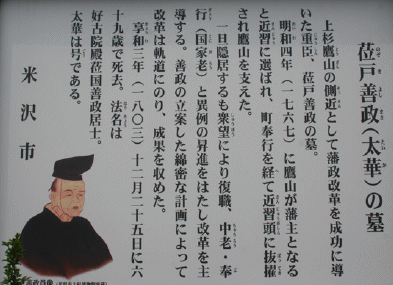 莅戸善政(太華)の墓
上杉鷹山の側近として藩政改革を成功に導
いた重臣、莅戸善政の墓。
明和四年(一七六七)に鷹山が藩主となる
と近習に選ばれ、町奉行を経て近習頭に抜擢
され鷹山を支えた。
一旦隠居するも衆望により復職、中老・奉
行(国家老)と異例の昇進をはたし改革を主
導する。善政の立案した綿密な計画によって
改革は軌道にのり、成果を収めた。
享和三年(一八〇三)十二月二十五日に六
十九歳で死去。法名は
好古院殿莅国善政居士。
太華は号である。
米沢市